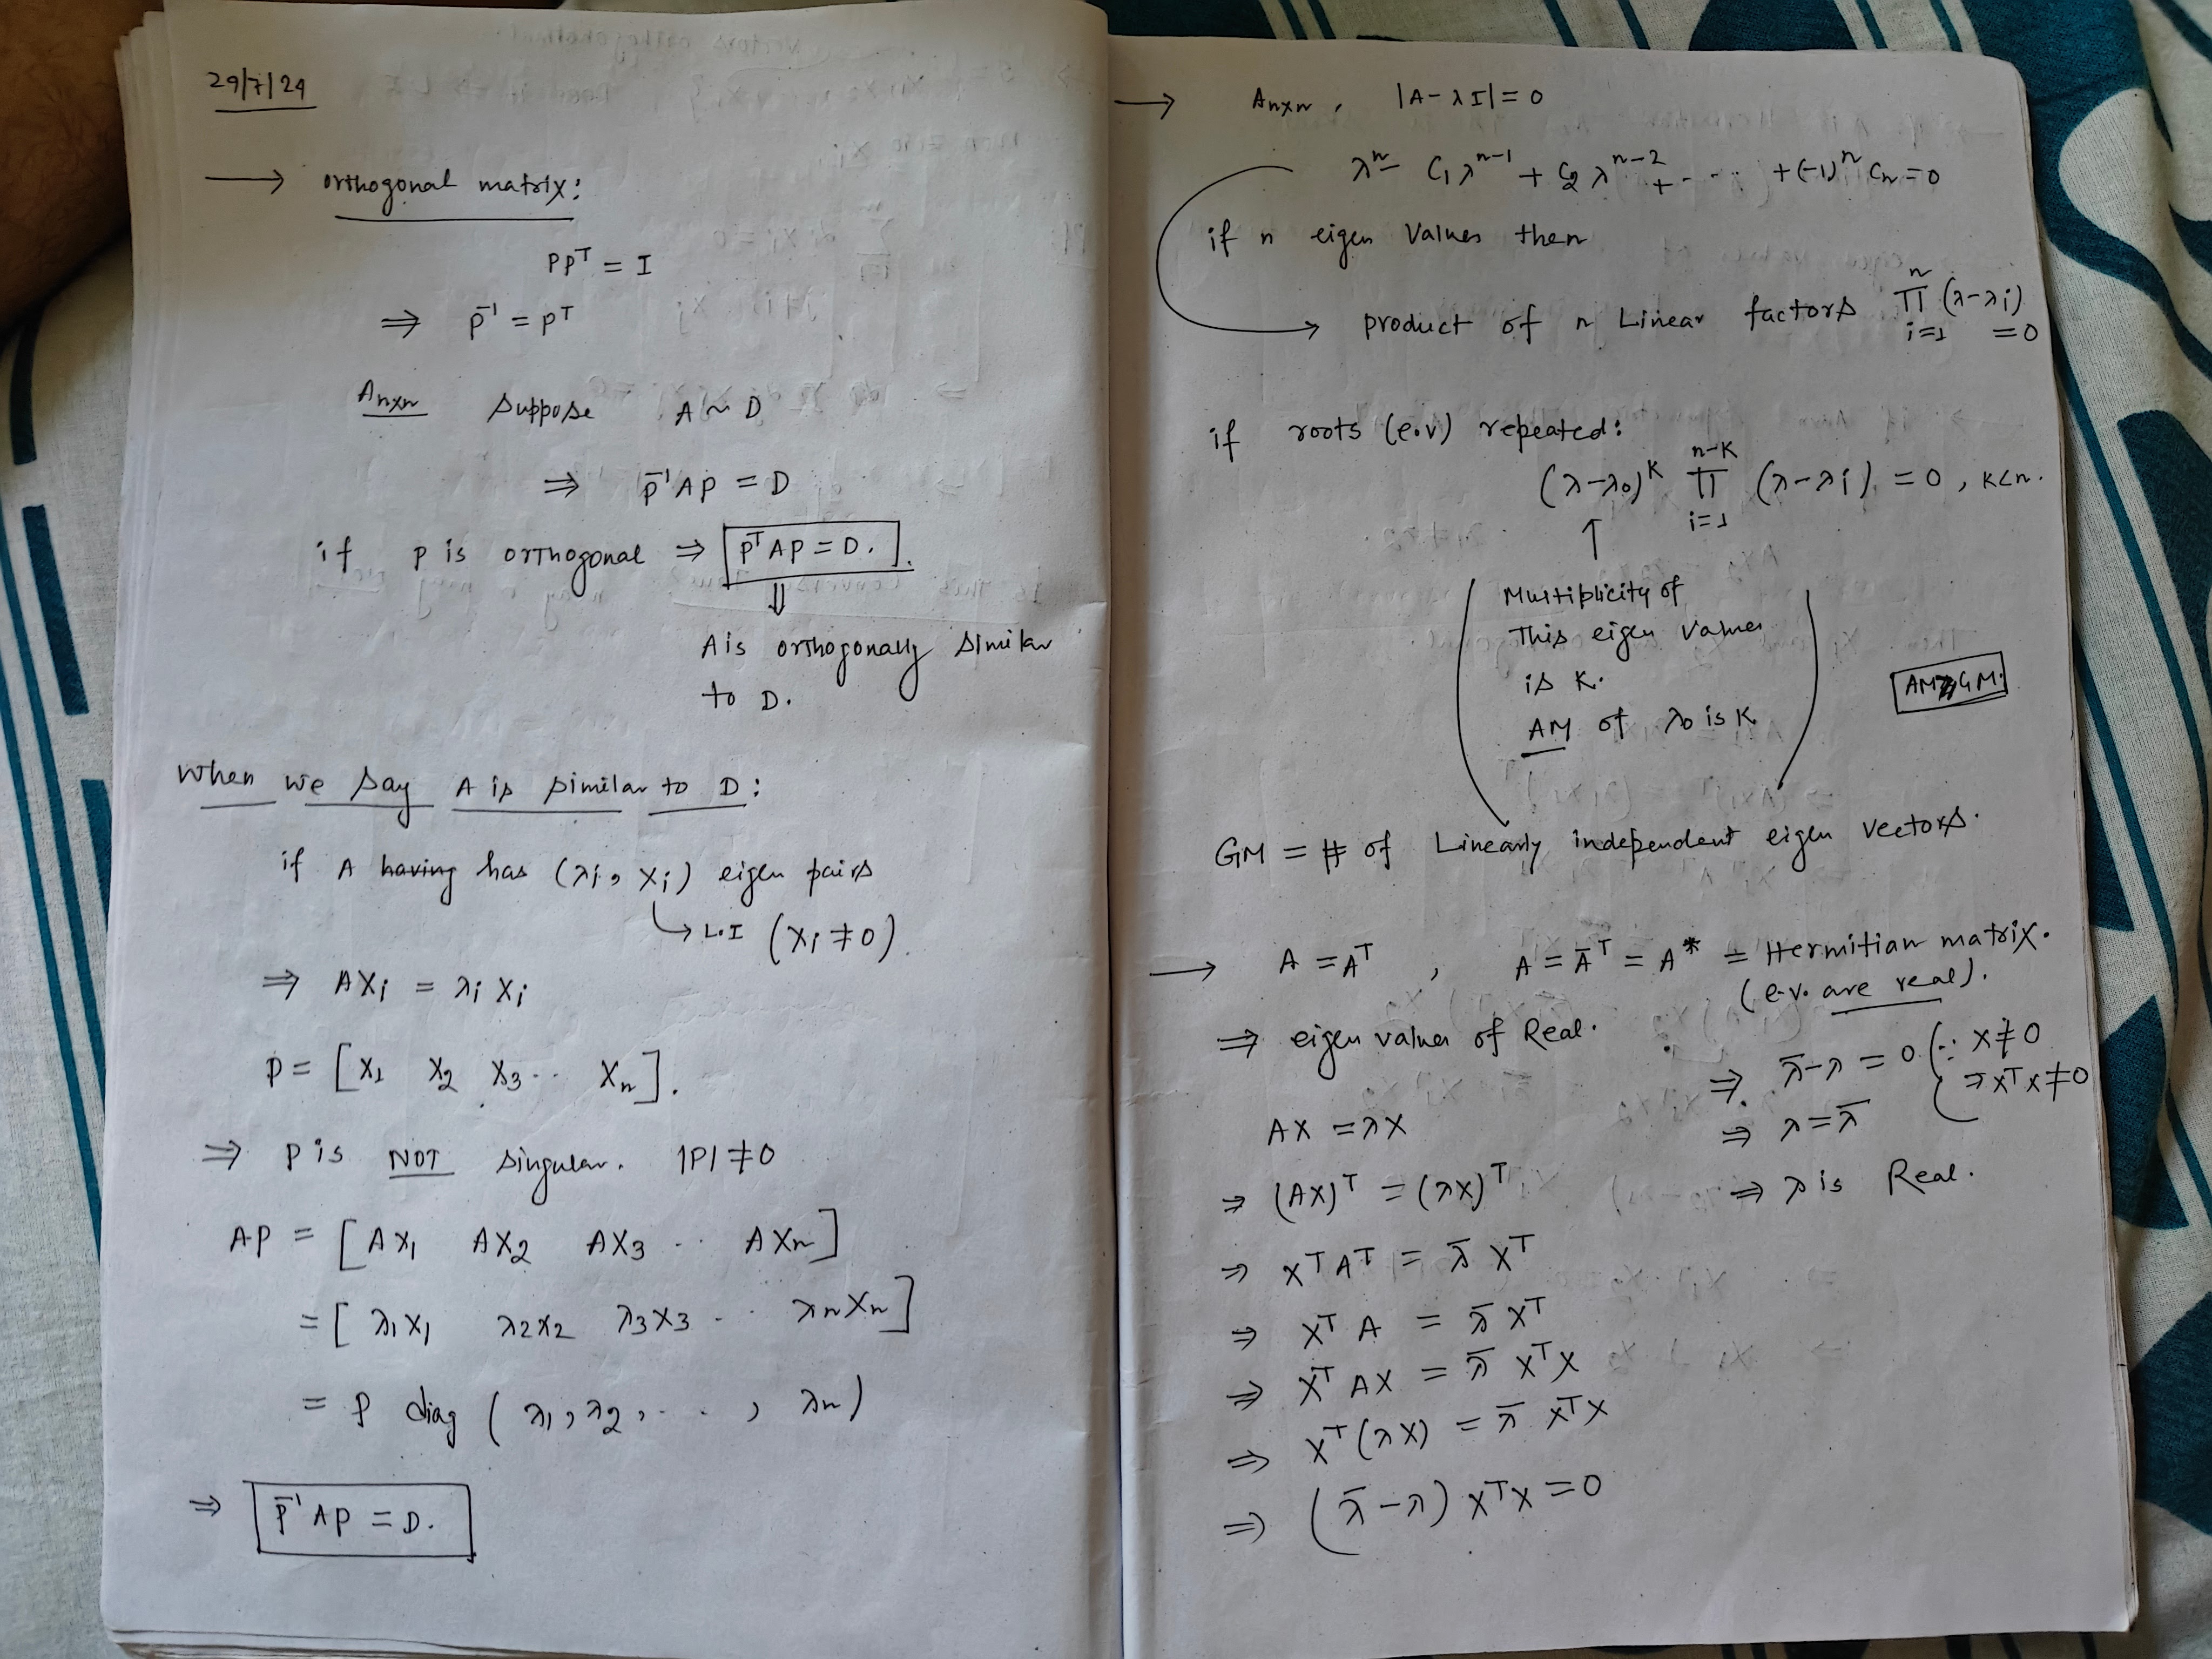 29/7/24
→ orthogonal matrix:
PPᵀ = I
⇒ P⁻¹ = Pᵀ
Anxn Suppose A ~ D
⇒ P⁻¹AP = D
if P is orthogonal ⇒ PᵀAP = D.
⇓
A is orthogonally similar
to D.
When we say A is similar to D:
if A having has (λi, Xi) eigen pairs
↳ L.I (Xi ≠ 0).
⇒ AXi = λi Xi
P = [X1 X2 X3 .. Xn].
⇒ P is NOT singular. |P| ≠ 0
AP = [AX1 AX2 AX3 .. AXn]
= [λ1X1 λ2X2 λ3X3 .. λnXn]
= P diag (λ1, λ2, ... , λn)
⇒ P⁻¹AP = D.
→ Anxn, |A-λI| = 0
λⁿ - C1λⁿ⁻¹ + C2λⁿ⁻² + - .. +(-1)ⁿ Cn = 0
if n eigen values then
→ product of n Linear factors n Π i=1 (λ-λi) = 0
if roots (e.v) repeated:
(λ-λ0)ᴷ n-K Π i=1 (λ-λi) = 0, K<n.
↑
Multiplicity of
This eigen values
is K.
AM of λ0 is K
GM = # of Linearly independent eigen vectors.
→ A = Aᵀ, A = Āᵀ = A* = Hermitian matrix.
(e.v. are real).
⇒ eigen values of Real.
AX = λX
⇒ (AX)ᵀ = (λX)ᵀ
⇒ XᵀAᵀ = λ̄ Xᵀ
⇒ XᵀA = λ̄ Xᵀ
⇒ XᵀAX = λ̄ XᵀX
⇒ Xᵀ(λX) = λ̄ XᵀX
⇒ (λ̄-λ) XᵀX = 0
⇒ λ̄-λ = 0 (∵ X≠0
⇒ XᵀX≠0
⇒ λ = λ̄
⇒ λ is Real.